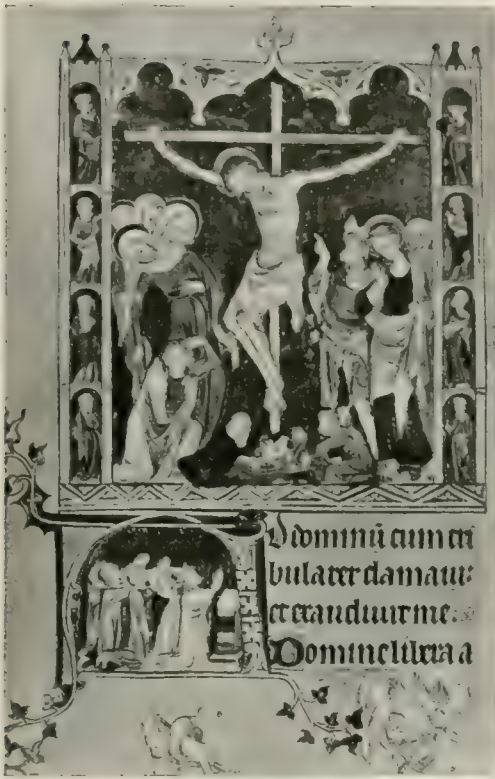 d dominū cum tri
bularer clamaui:
et exaudiuit me.
Domine libera a